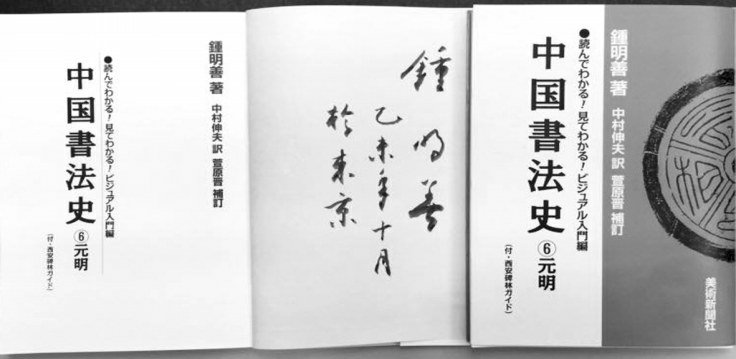 鍾明善 著
中村伸夫 訳 萱原晋 補訂
●読んでわかる！見てわかる！ビジュアル入門編
中国書法史⑥元明
（付・西安碑林ガイド）
鍾明善
乙未年十月
於東京
鍾明善 著
中村伸夫 訳 萱原晋 補訂
●読んでわかる！見てわかる！ビジュアル入門編
中国書法史⑥元明
（付・西安碑林ガイド）
美術新聞社